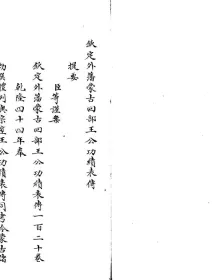 欽定外藩蒙古回部王公功績表傳
提要
臣等謹案
欽定外藩蒙古回部王公功績表傳一百二十卷
乾隆四十四年奉
功績王公功績表傳同